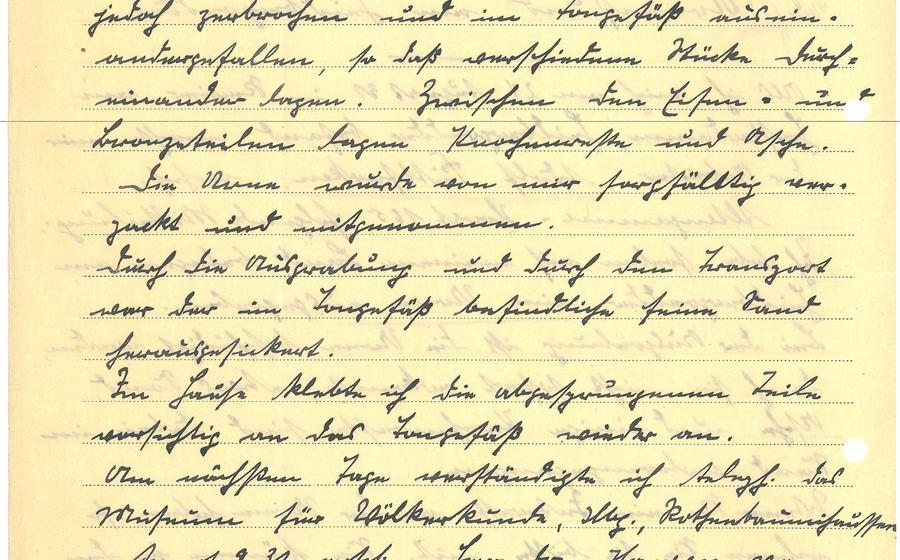 jedoch zerbrochen und im Tongefäß ausein-
andergefallen, so daß verschiedene Stücke durch-
einander lagen. Zwischen den Eisen- und
Bronzeteilen lagen Knochenreste und Asche.
Die Urne wurde von mir sorgfälltig ver-
packt und mitgenommen.
Durch die Ausgrabung und durch den Transport
war der im Tongefäß befindliche feine Sand
herausgesickert.
Im Hause klebte ich die abgesprungenen Teile
vorsichtig an das Tongefäß wieder an.
Am nächsten Tage verständigte ich telegh. das
Museum für Völkerkunde, Hbg., Rothenbaumchaussee